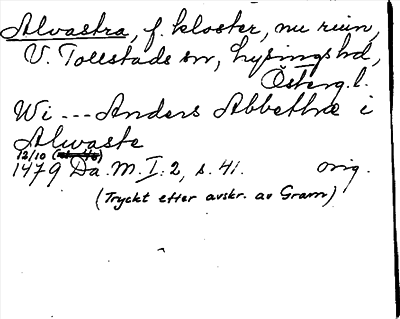 Alvastra, f. kloster, nu ruin,
V. Tollstads sn, Lysings hd,
Österg.l.
Wi --- Anders Abbethæ i
Alwaste
12/10
1479 Da. M. I. 2, s. 41. orig.
(Tryckt efter avskr. av Gram)